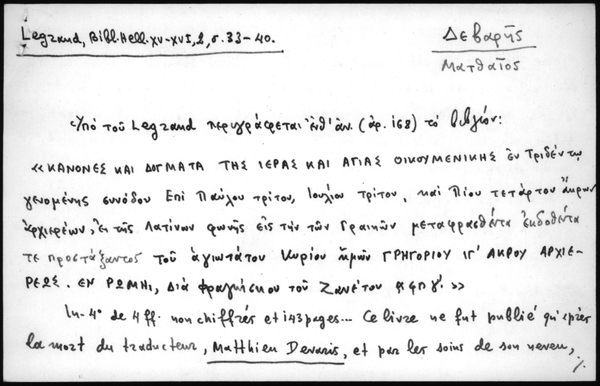 Legrand, Bibl. Hell. XV-XVI, 2, σ. 33-40.
Δεβαρῆς
Ματθαῖος
Ὑπὸ τοῦ Legrand περιγράφεται ἐνθ' ἀν. (ἀρ. 168) τὸ βιβλίον:
«ΚΑΝΟΝΕΣ ΚΑΙ ΔΟΓΜΑΤΑ ΤΗΣ ΙΕΡΑΣ ΚΑΙ ΑΓΙΑΣ ΟΙΚΟΥΜΕΝΙΚΗΣ ἐν Τριδέντῳ
γενομένης συνόδου Ἐπὶ Παύλου τρίτου, Ιουλίου τρίτου, καὶ Πίου τετάρτου ἄκρων
ἀρχιερέων, ἐκ τῆς Λατίνων φωνῆς εἰς τὴν τῶν Γραικῶν μεταφρασθέντα ἐκδοθέντα
τε προστάξαντος τοῦ ἁγιωτάτου Κυρίου ἡμῶν ΓΡΗΓΟΡΙΟΥ ΙΓ' ΑΚΡΟΥ ΑΡΧΙΕ-
ΡΕΩΣ. ΕΝ ΡΩΜΗΙ, Διὰ Φραγκίσκου τοῦ Ζανέτου ͵αφπγ'.»
In-4° de 4 ff. non chiffrés et 143 pages... Ce livre ne fut publié qu'après
la mort du traducteur, Matthieu Devaris, et par les soins de son neveu,
./.